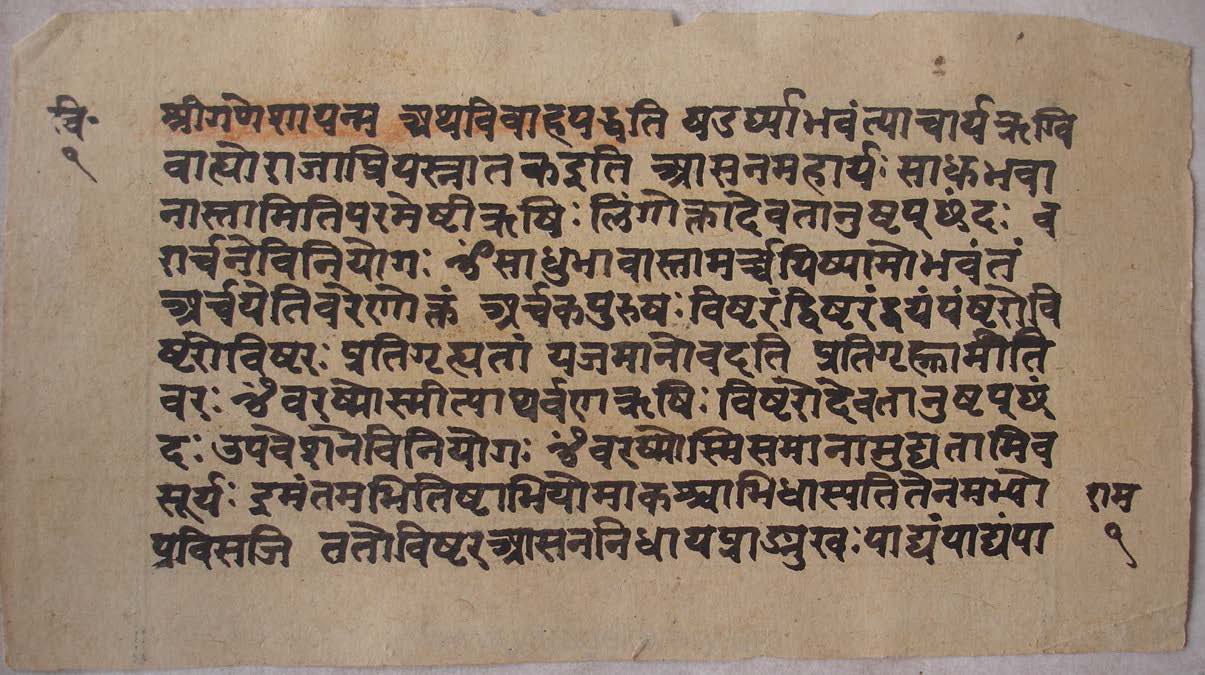 वि॰
१
श्रीगणेशायन्म अथविवाहपद्धति षडर्घ्याभवंत्याचार्यऋग्वि
वाह्योराजाप्रियस्नातकइति आसनमहार्यः साधभवा
नास्तामितिपरमेष्टीऋषिः लिंगोक्तादेवतानुष्टप्छंदः व
रार्चनेविनियोगः ॐसाधुभावास्तामर्च्चयिष्यामोभवंतं
अर्चयेतिवरेणोक्तं अर्चकपुरुषः विष्टरंद्विष्टरंद्वयंपंष्टरोवि
ष्टरोविष्टरः प्रतिगृह्यतां यजमानोवदति प्रतिगृह्णामीति
वरः ॐवरष्मोस्मीत्याथर्वणऋषिः विष्टरोदेवतानुष्टप्छं
दः उपवेशनेविनियोगः ॐवरष्मोस्मिसमानामुद्यतामिव
सूर्यः इमंतमभितिष्टाभियोमाकश्चाभिधास्यतितैनमभ्यो
प्रविसजि ततोविष्टरआसननिधायप्राङ्मुखः पाद्यंपाद्यंपा
राम
१